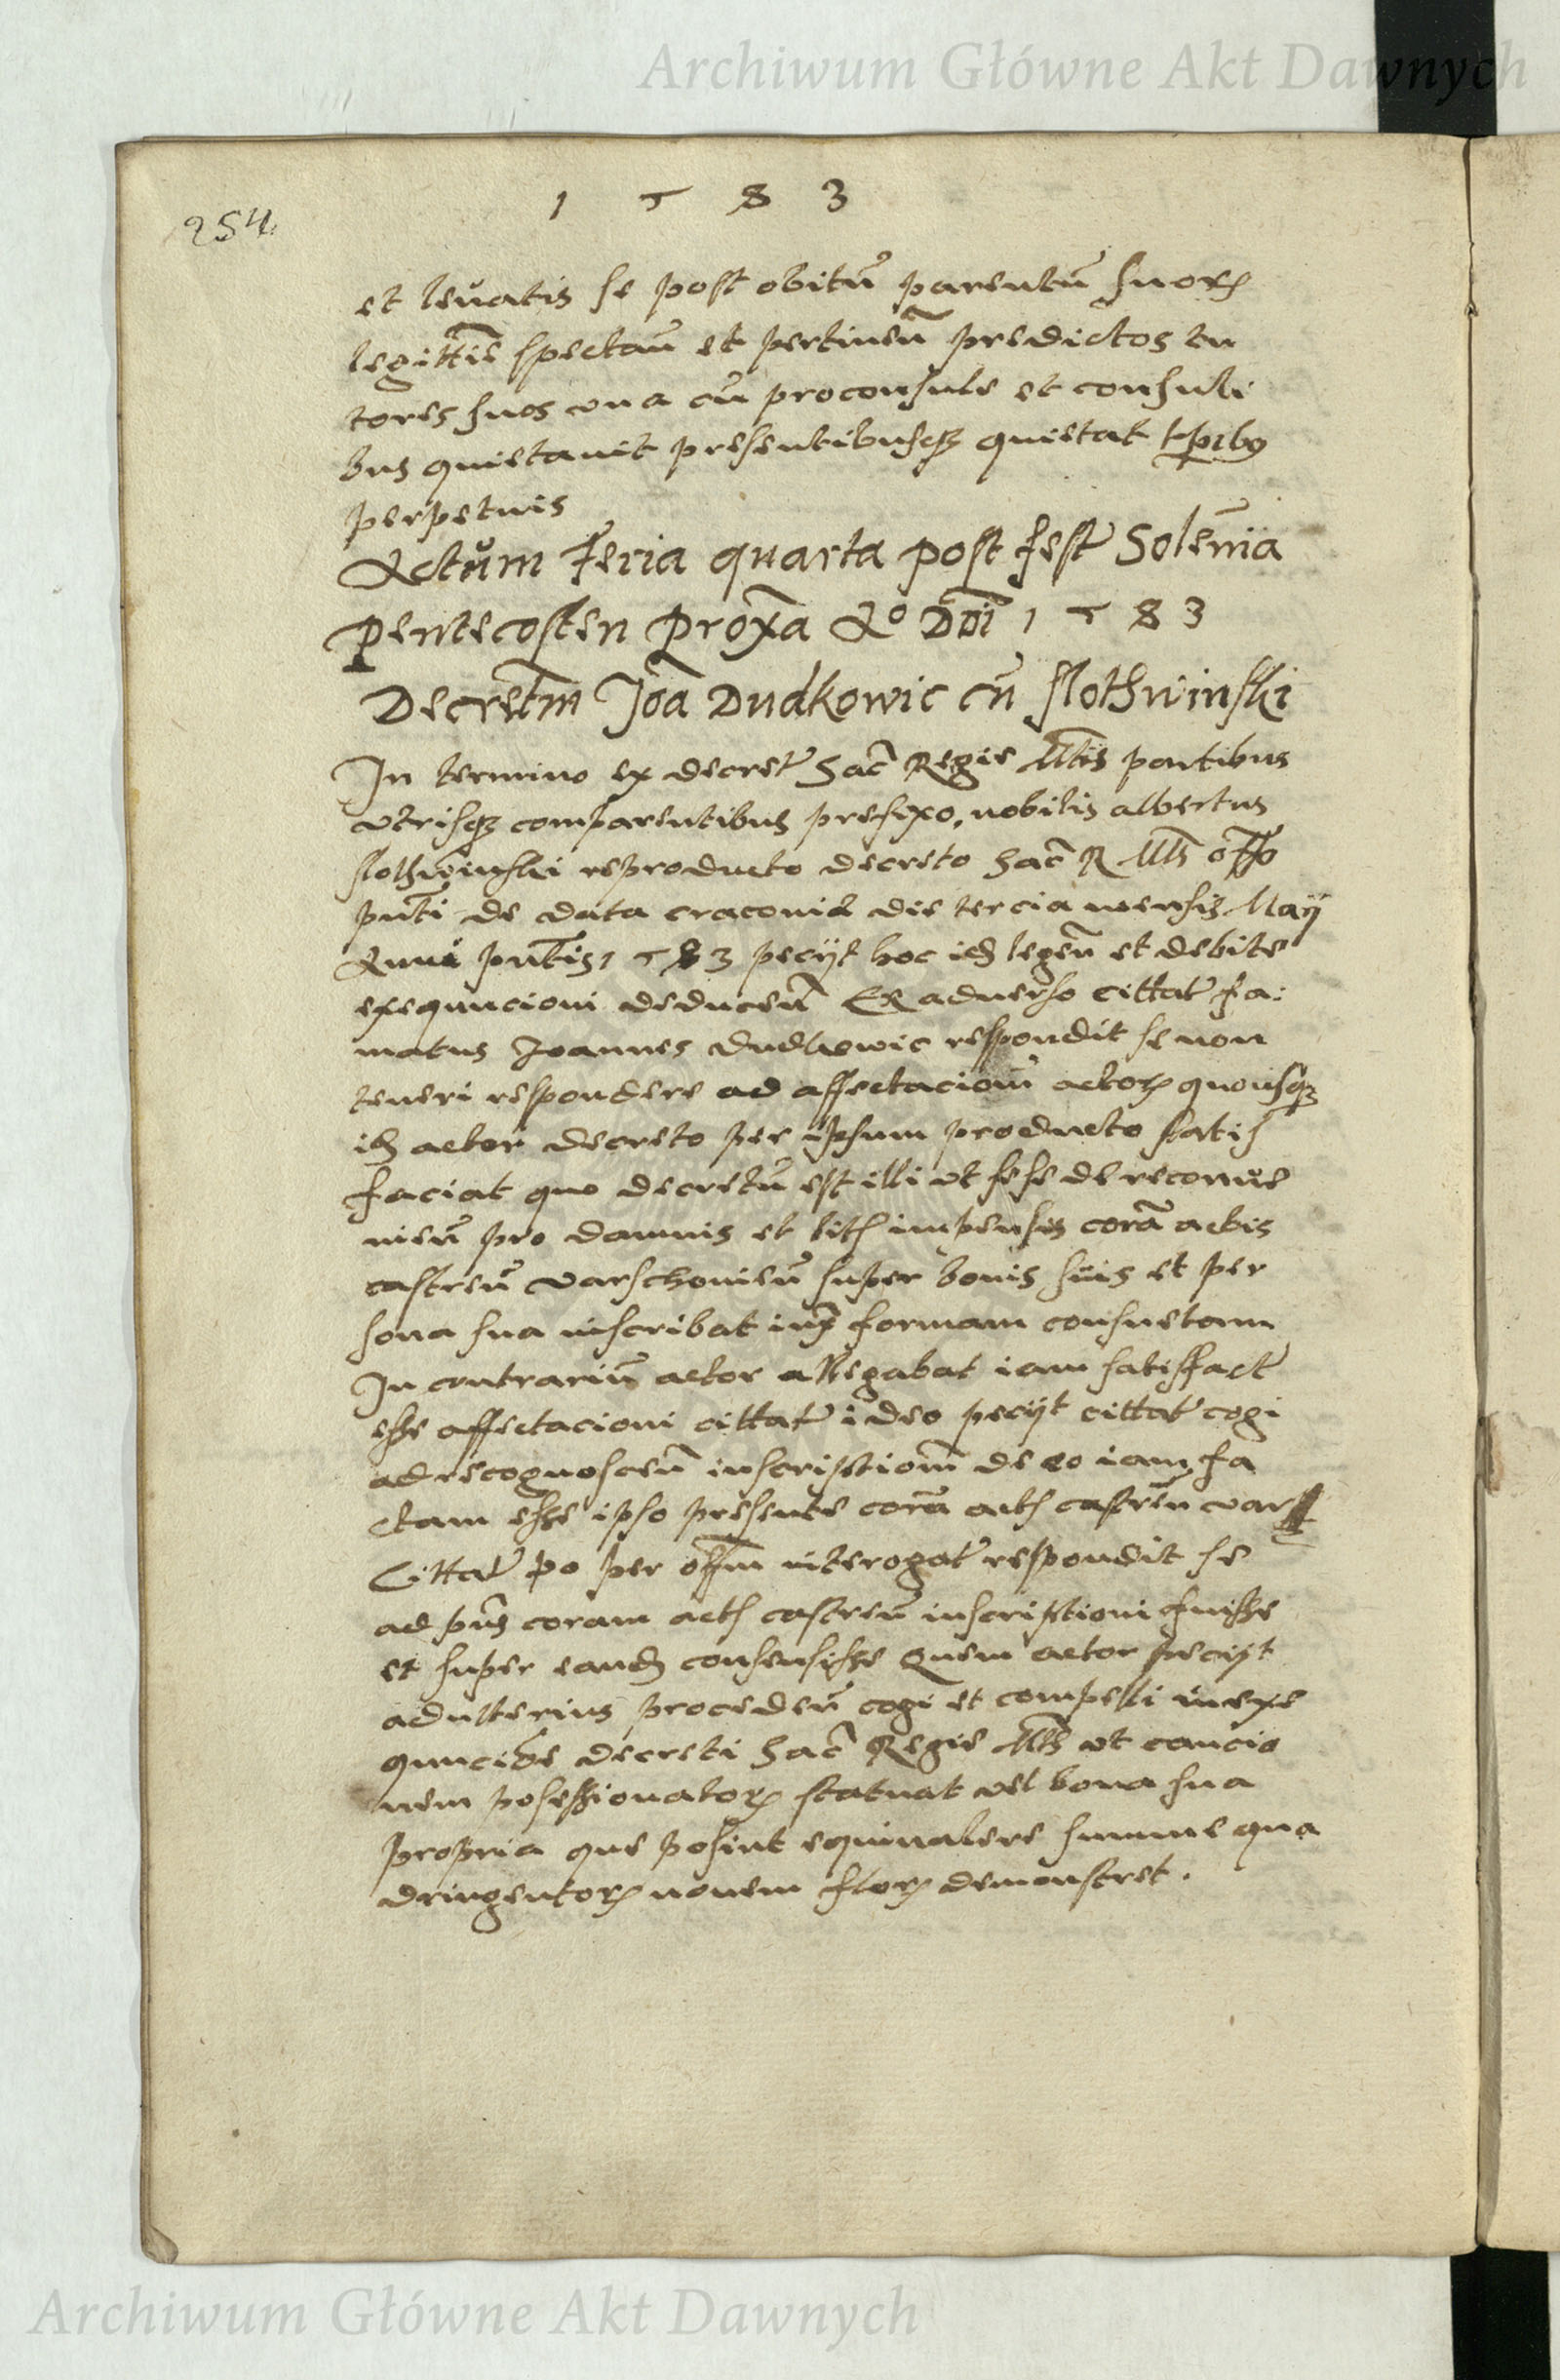 Archiwum Główne Akt Dawnych
1 5 8 3
254.
et levatis se post obitū parentū suorꝝ
legittīe spectań et pertineń predictos tu
tores suos una cū proconsule et consuli
bus quietavit presentibusqꝫ quietat tꝑibꝰ
perpetuis
Actum Feria quarta post fest Solēnia
Pentecosten Proxā Aº Dōī 1 5 8 3
Decretm Joā Dudkowic cū slothwinski
In termino ex decret Sac̄ Regie Mtīs partibus
utrisqꝫ comparentibus prefixo, nobilis albertus
slothwinski reproducto decreto Sac̄ R Mtīs offo
pn̄ti de data cracovia die tercia mensis Maÿ
Anni pn̄tis 1 5 8 3 pecÿt hoc id legeń et debite
exequucioni deduceń Ex adverso cittat fa:
matus Joannes dudkowic respondit se non
teneri respondere ad affectaciom̄ actorꝭ quousqꝫ
id actor decreto per ipsum producto satis
faciat quo decretū est illi ut sese de reconve
nień pro damnis et litꝭ impensis corā actis
castreń varschovień super bonis suis et per
sona sua inscribat iux formam consuetam
In contrariū actor allegabat iam satisfact
esse affectacioni cittat ideo pecÿt cittat cogi
ad recognosceń inscriptiom̄ de eo iam fa
ctam esse ipso presente corā actꝭ castreń vars
Cittat ꝟo per offm̄ interogat respondit se
ad pn̄s coram actꝭ castreń inscriptioni fuisse
et super eand consensisse Quem actor pecÿt
adulterius procedeń cogi et compelli in exe
quucioe decreti Sac̄ Regie Mtīs ut caucio
nem posessionatorꝝ statuat vel bona sua
propria que posint equivalere summe qua
dringentorꝝ novem florꝝ demonstret.
Archiwum Główne Akt Dawnych